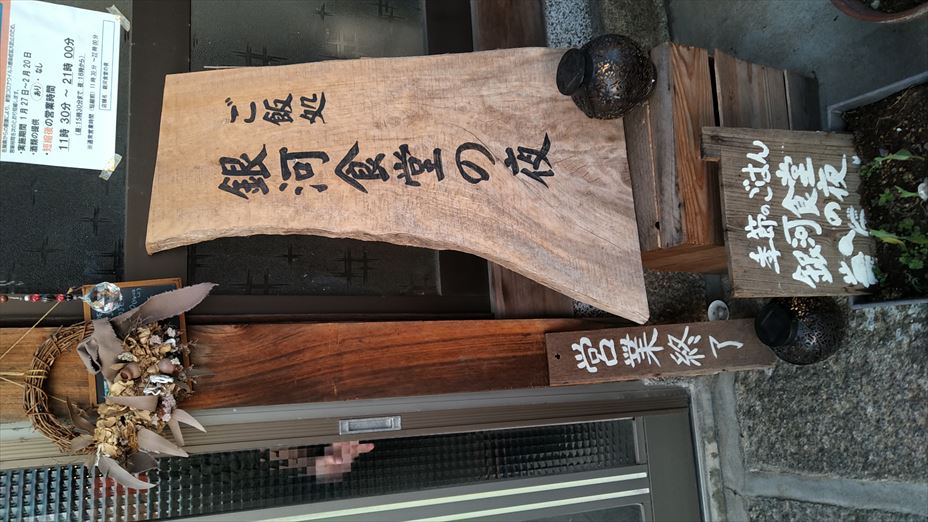 ・実施期間 1月27日～2月20日
・酒類の提供 （あり・なし
・短縮後の営業時間
11時30分～21時00分
(昼:15時30分まで 夜:18時から)
ご飯処
銀河食堂の夜
季節のごはん
銀河食堂
の夜
営業終了